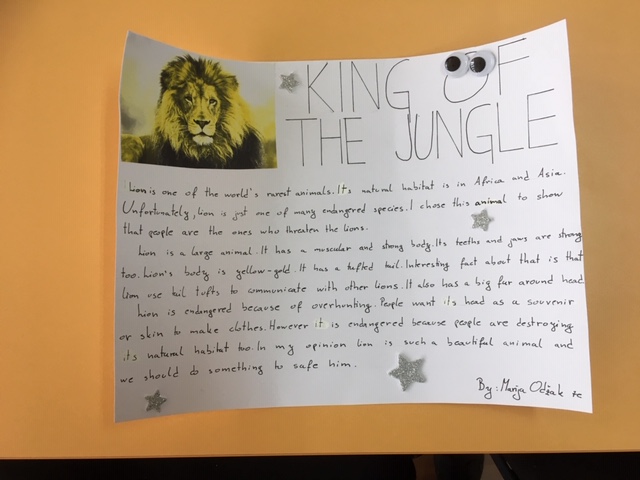 KING OF
THE JUNGLE
Lion is one of the world's rarest animals. It's natural habitat is in Africa and Asia.
Unfortunately, lion is just one of many endangered species. I chose this animal to show
that people are the ones who threaten the lions.
Lion is a large animal. It has a muscular and strong body. Its teeths and jaws are strong
too. Lion's body is yellow-gold. It has a tufted tail. Interesting fact about that is that
lion use tail tufts to communicate with other lions. It also has a big fur around head.
Lion is endangered because of overhunting. People want its head as a souvenir
or skin to make clothes. However it is endangered because people are destroying
its natural habitat too. In my opinion lion is such a beautiful animal and
we should do something to safe him.
By: Marija Odžak